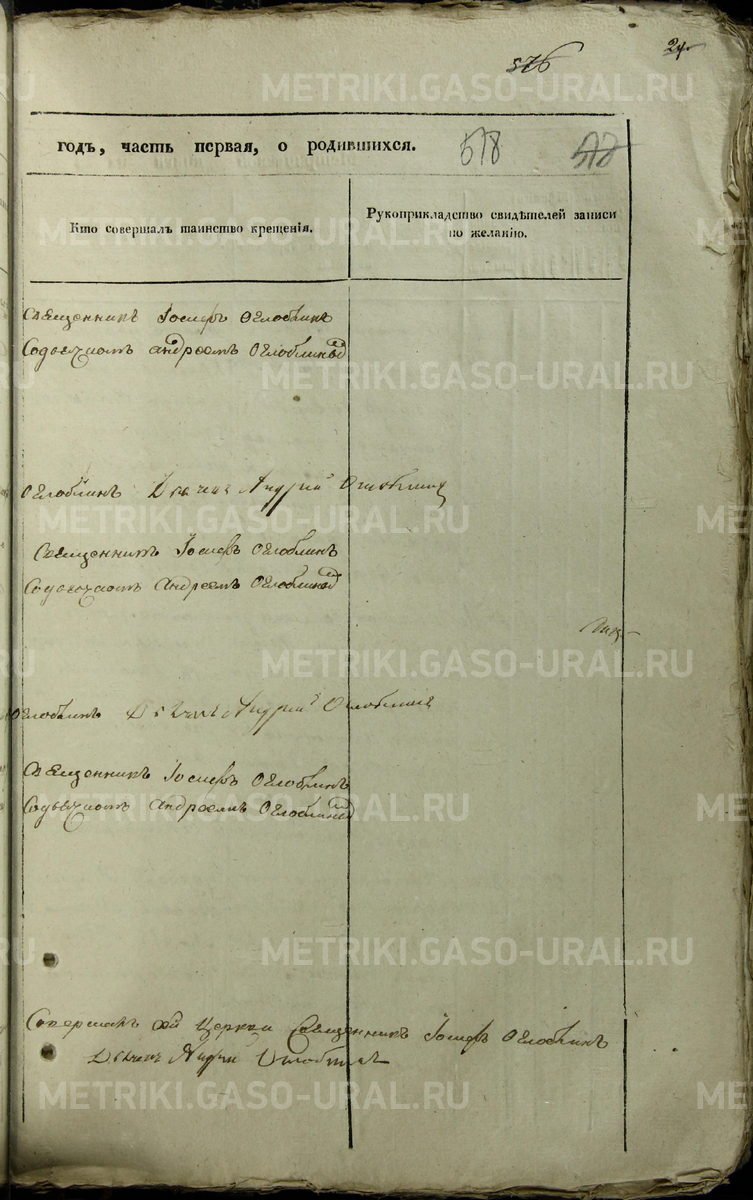 576
24.
годъ, часть первая, о родившихся.
518
Кто совершалъ таинство крещенія.
Рукоприкладство свидѣтелей записи
по желанію.
Священникъ Іосифъ Оглоблинъ
Содьячкомъ Андреемъ Оглоблинымъ
Оглоблинъ Дьячекъ Андрей Оглоблинъ
Священникъ Іосифъ Оглоблинъ
Содьячкомъ Андреемъ Оглоблинымъ
Оглоблинъ Дьячекъ Андрей Оглоблинъ
Священникъ Іосифъ Оглоблинъ
Содьячкомъ Андреемъ Оглоблинымъ
Церкви Священникъ Іосифъ Оглоблинъ
Дьячекъ Андрей Оглоблинъ
METRIKI.GASO-URAL.RU